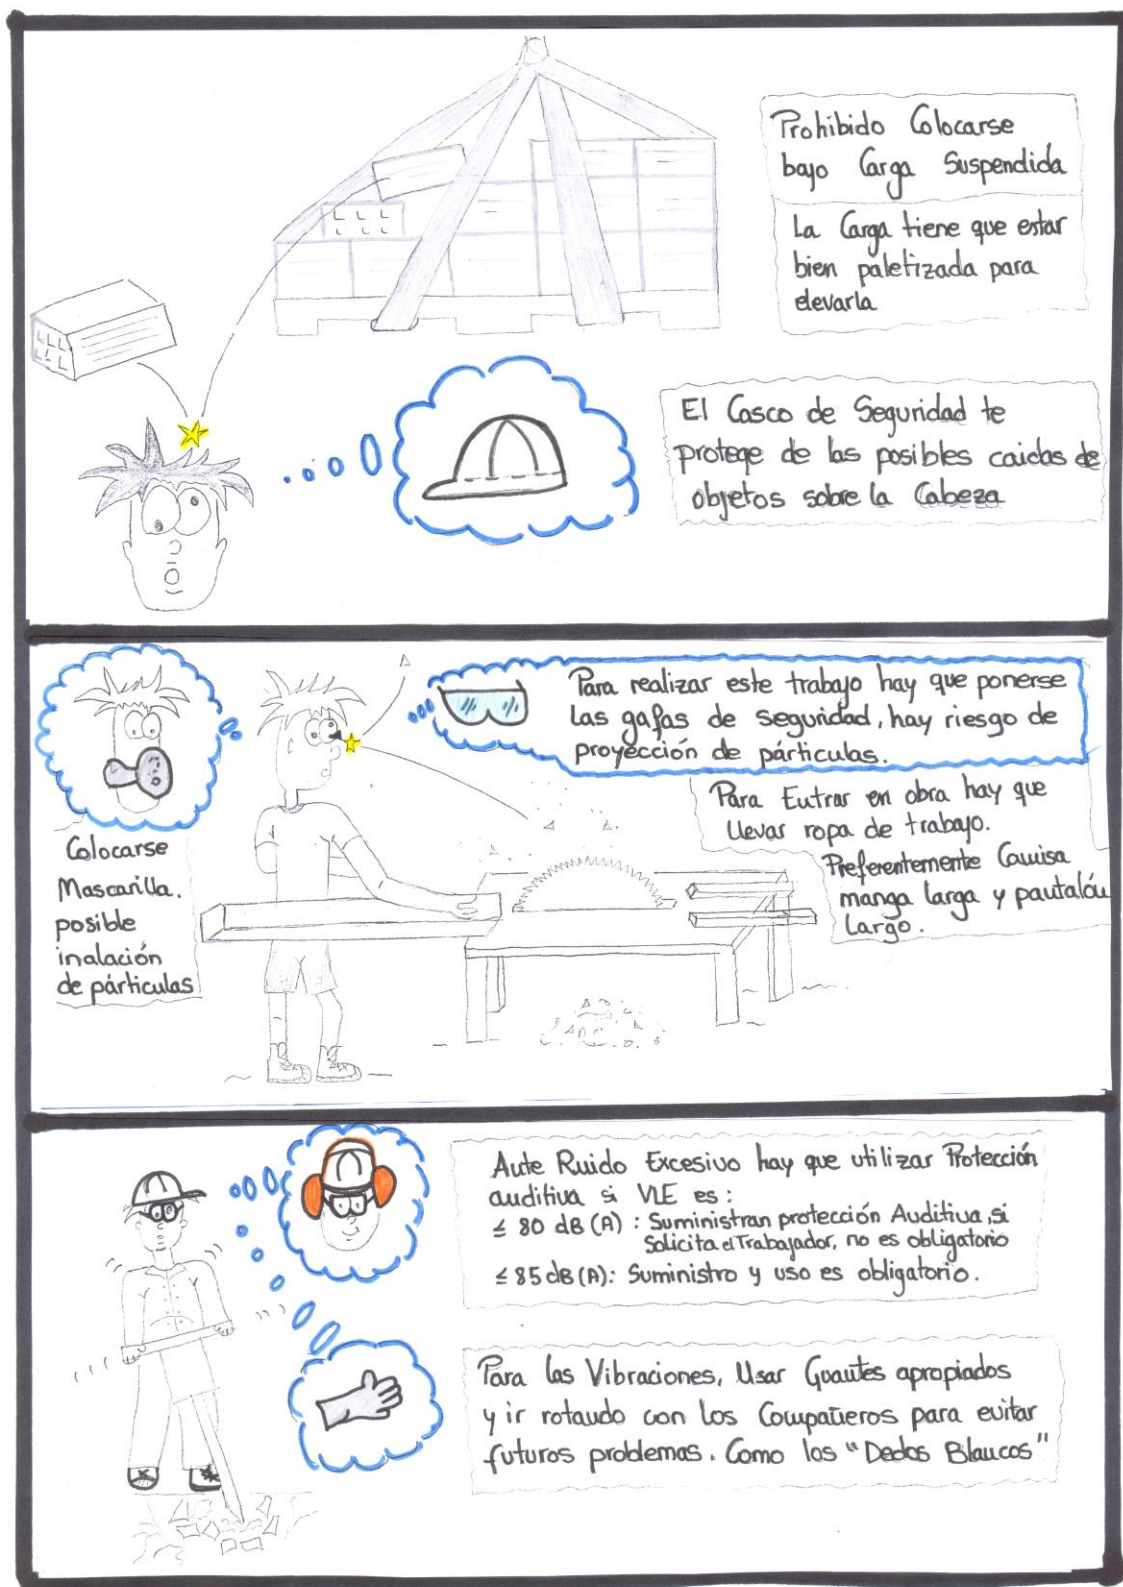 Prohibido Colocarse
bajo Carga Suspendida
La Carga tiene que estar
bien paletizada para
elevarla
El Casco de Seguridad te
protege de las posibles caidas de
objetos sobre la Cabeza
Para realizar este trabajo hay que ponerse
las gafas de seguridad, hay riesgo de
proyección de párticulas.
Para Entrar en obra hay que
llevar ropa de trabajo.
Preferentemente Camisa
manga larga y pantalón
Largo.
Colocarse
Mascarilla.
posible
inalación
de párticulas
Ante Ruido Excesivo hay que utilizar Protección
auditiva si VLE es:
≤ 80 dB (A) : Suministran protección Auditiva, si
Solicita el Trabajador, no es obligatorio
≤ 85 dB (A): Suministro y uso es obligatorio.
Para las Vibraciones, Usar Guantes apropiados
y ir rotando con los Compañeros para evitar
futuros problemas. Como los "Dedos Blancos"